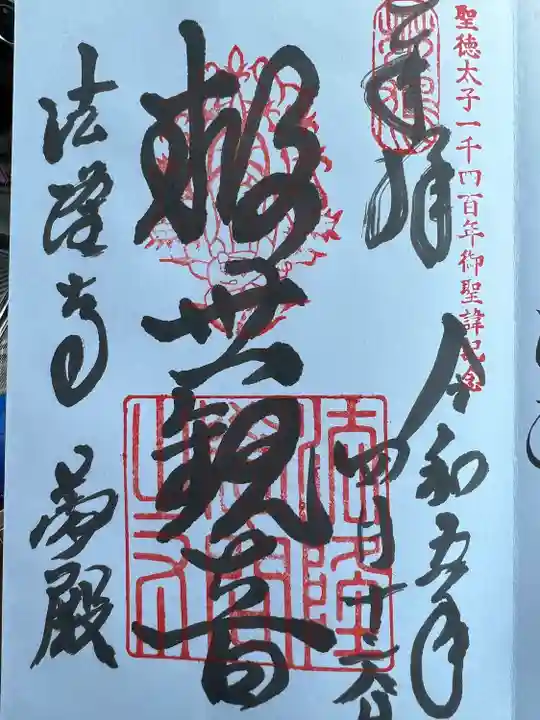 聖徳太子一千四百年御聖諱記念
奉拝
令和五年
四月廿六日
救世観音
法隆寺 夢殿